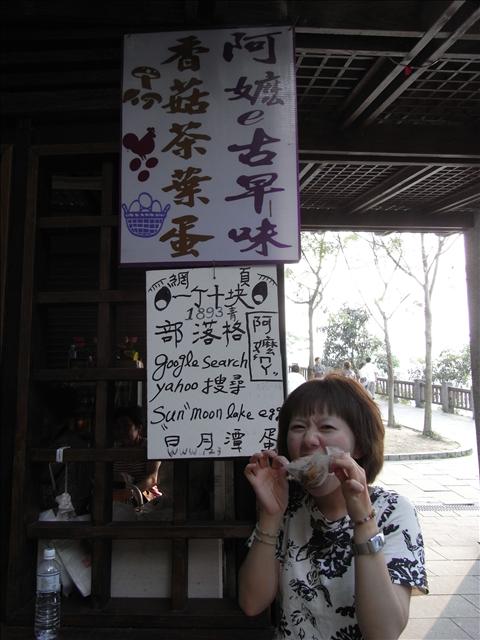 阿嬤e古早味
香菇茶葉蛋
網頁
一个十块
1893青
部落格
阿嬤
google search
yahoo 搜尋
"Sun" moon lake egg
"日月潭 蛋